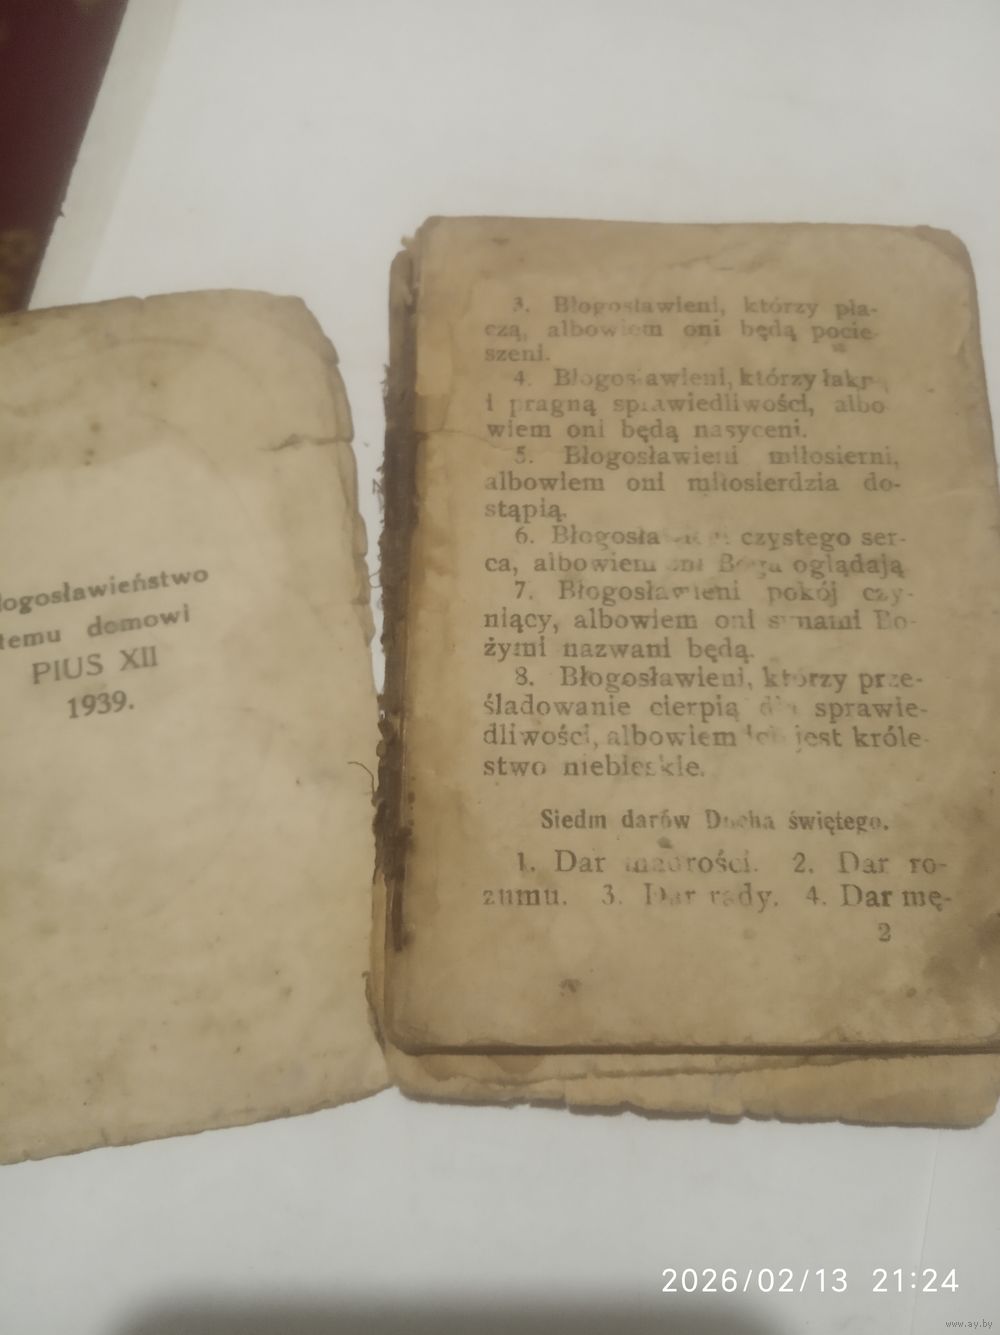 logosławieństwo
temu domowi
PIUS XII
1939.
3. Błogosławieni, którzy pła-
czą, albowiem oni będą pocie-
szeni.
4. Błogosławieni, którzy łakn
i pragną sprawiedliwości, albo
wiem oni będą nasyceni.
5. Błogosławieni miłosierni,
albowiem oni miłosierdzia do-
stąpią.
6. Błogosła czystego ser-
ca, albowiem oni Boga oglądają
7. Błogosławieni pokój czy-
niący, albowiem oni synami Bo-
żymi nazwani będą.
8. Błogosławieni, którzy prze-
śladowanie cierpią dla sprawie-
dliwości, albowiem ich jest króle-
stwo niebieskie.
Siedm darów Ducha świętego.
1. Dar mądrości. 2. Dar ro-
zumu. 3. Dar rady. 4. Dar mę-
2
2026/02/13 21:24
www.ay.by